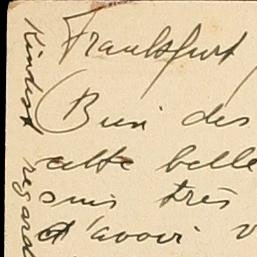 Frankfurt
Bien des
cette belle
suis très
d'avoir v
Kindest regard